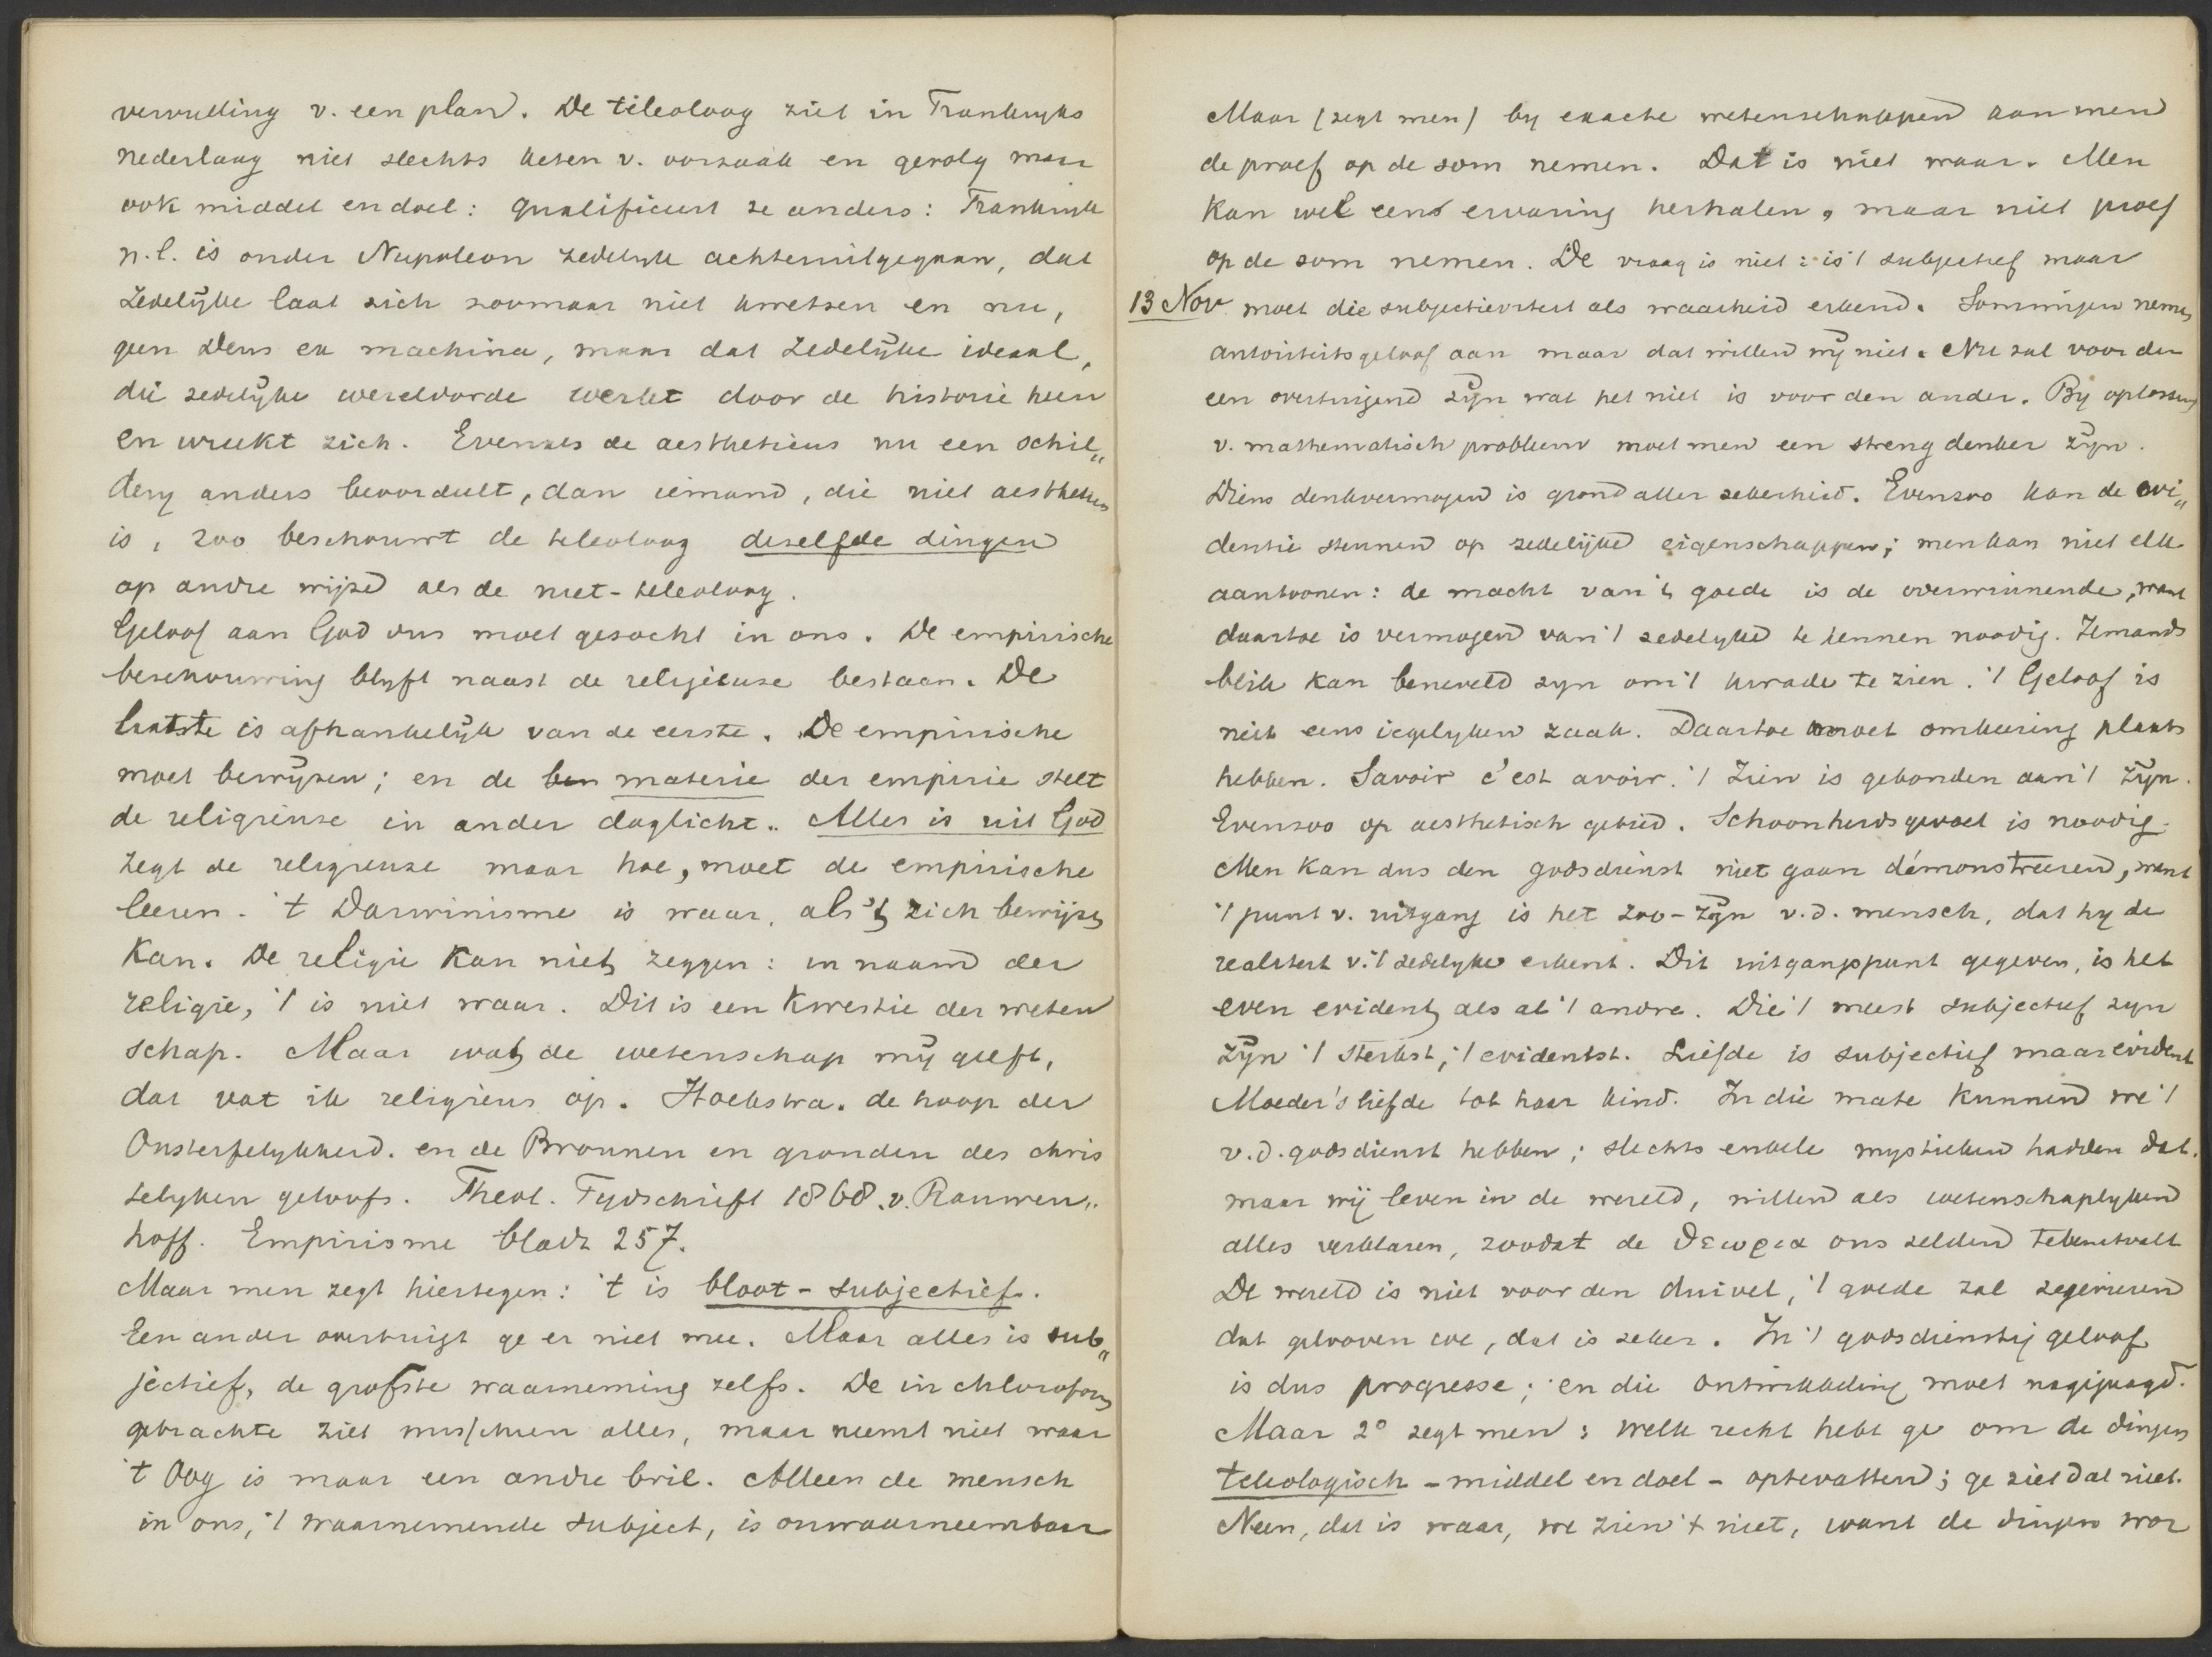 vervulling v. een plan. De teleoloog ziet in Frankryks
nederlaag niet slechts keten v. oorzaak en gevolg maar
ook middel en doel: qualificeert ze anders: Frankryk
n.l. is onder Napoleon zedelyk achteruitgegaan, dat
zedelijke laat zich zoomaar niet kwetsen en nu,
geen Deus ex machina, maar dat zedelijke ideaal,
die zedelijke wereldorde werkt door de historie heen
en wreekt zich. Evenals de aestheticus nu een schil„
dery anders beoordeelt, dan iemand, die niet aestheticus
is, zoo beschouwt de teleoloog dezelfde dingen
op andre wijze als de niet-teleoloog.
Geloof aan God dus moet gezocht in ons. De empirische
beschouwing blyft naast de religieuse bestaan. De
laatste is afhankelijk van de eerste. De empirische
moet bewijzen; en de materie der empirie stelt
de religieuse in ander daglicht. Alles is uit God
zegt de religieuse maar hoe, moet de empirische
leeren. 't Darwinisme is waar, als 't zich bewijzen
kan. De religie kan niet zeggen: in naam der
religie, 't is niet waar. Dit is een kwestie der weten
schap. Maar wat de wetenschap mij geeft,
dat vat ik religieus op. Hoekstra. de hoop der
Onsterfelykheid. en de Bronnen en gronden des chris
telyken geloofs. Theol. Tydschrift 1868. v. Rauwen„
hoff. Empirisme bladz 257.
Maar men zegt hiertegen: 't is bloot-subjectief.
Een ander overtuigt ge er niet mee. Maar alles is sub„
jectief, de grofste waarneming zelfs. De in chloroform
gebrachte ziet misschien alles, maar neemt niet waar
't Oog is maar een andre bril. Alleen de mensch
in ons, 't waarnemende subject, is onwaarneembaar
Maar (zegt men) by exacte wetenschappen kan men
de proef op de som nemen. Dat is niet waar. Men
kan wel eens ervaring herhalen, maar niet proef
op de som nemen. De vraag is niet: is 't subjectief maar
13 Nov. moet die subjectieviteit als waarheid erkend. Sommigen nemen
autoriteitsgeloof aan maar dat willen wij niet. Nu zal voor den
een overtuigend zijn wat het niet is voor den ander. By oplossing
v. mathematisch probleem moet men een streng denker zijn.
Diens denkvermogen is grond aller zekerheid. Evenzoo kan de evi„
dentie steunen op zedelijke eigenschappen; men kan niet elk
aantoonen: de macht van 't goede is de overwinnende, want
daartoe is vermogen van 't zedelyke te kennen noodig. Iemands
blik kan beneveld zyn om 't kwade te zien. 't Geloof is
niet eens iegelyken zaak. Daartoe moet omkeering plaats
hebben. Savoir c'est avoir. 't Zien is gebonden aan 't zijn.
Evenzoo op aesthetisch gebied. Schoonheidsgevoel is noodig.
Men kan dus den godsdienst niet gaan démonstreeren, want
't punt v. uitgang is het zoo-zijn v.d. mensch, dat hy de
realiteit v. 't zedelyke erkent. Dit uitgangspunt gegeven, is het
even evident als al 't andre. Die 't meest subjectief zyn
zijn 't sterkst, 't evidentst. Liefde is subjectief maar evident
Moeder's liefde tot haar kind. In die mate kunnen we 't
v.d. godsdienst hebben; slechts enkele mystieken hadden dat.
maar wij leven in de wereld, willen als wetenschaplyken
alles verklaren, zoodat de θεωρια ons zelden
De wereld is niet voor den duivel, 't goede zal zegevieren
dat gelooven we, dat is zeker. In 't godsdienstig geloof
is dus progresse; en die ontwikkeling moet nagejaagd.
Maar 2° zegt men: welk recht hebt ge om de dingen
teleologisch - middel en doel - optevatten; ge ziet dat niet.
Neen, dat is waar, we zien 't niet, want de dingen wor